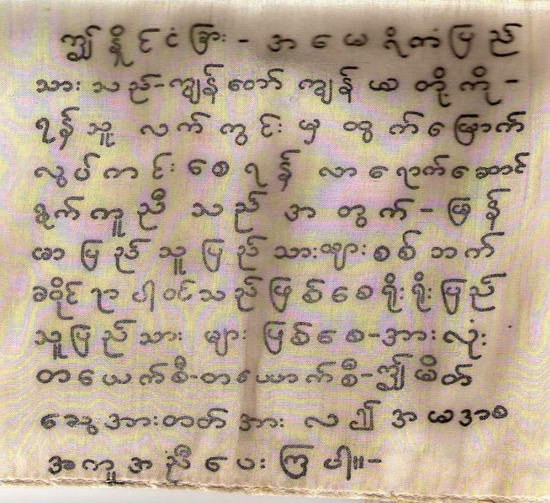 ဤနိုင်ငံခြား-အမေရိကံပြည်
သားသည်-ကျွန်တော်ကျွန်မတို့ကို-
ရန်သူ့လက်တွင်းမှထွက်မြောက်
လွပ်ကင်းစေရန် လာရောက်ဆောင်
ရွက်ကူညီသည် အတွက်-မြန်
မာပြည်သူပြည်သားများစစ်ဘက်
၌ပါဝင်သည်ဖြစ်စေရိုးရိုးပြည်
သူပြည်သား များ ဖြစ်စေ-အားလုံး
တယောက်စီ-တယောက်စီ-ဤမိတ်
ဆွေအားတတ်အားလ၍အယအစ
အကူအညီပေးကြပါ။-